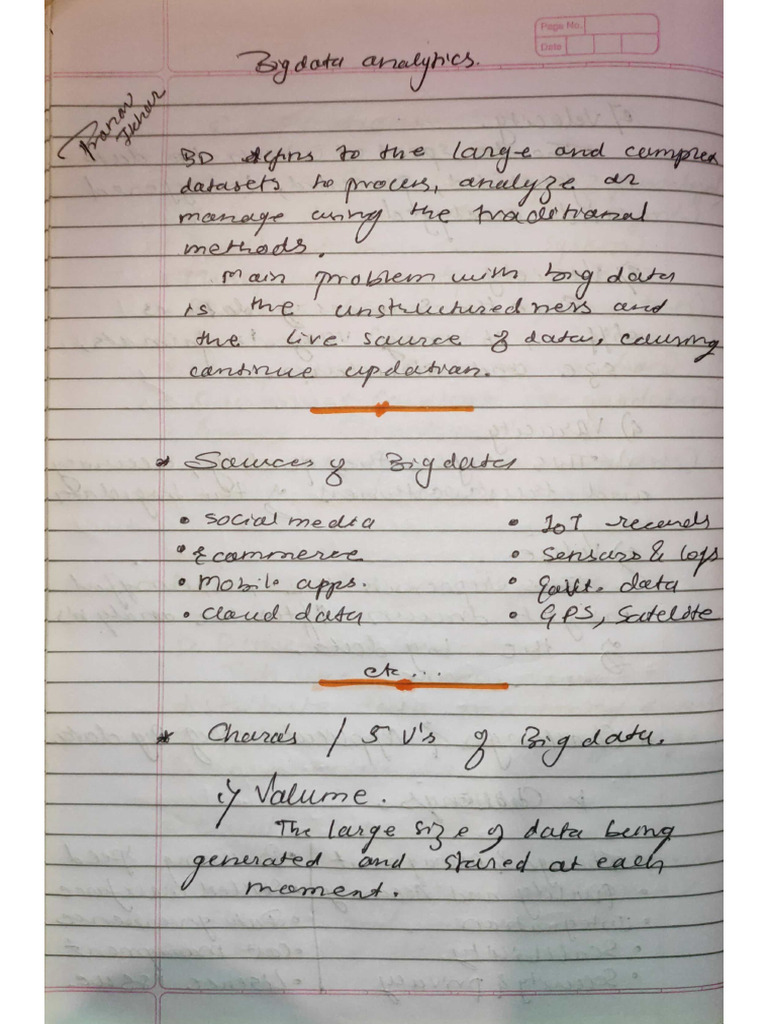 Page No.
Date
Bigdata analytics.
Pranav
BD refins to the large and complex
datasets to process, analyze or
manage using the traditional
methods.
Main problem with big data
is the unstructuredness and
the live source of data, causing
continue updation.
* Sources of Big data
• Social media
• IoT records
• Ecommerce
• Sensors & logs
• Mobile apps.
• Govt. data
• Cloud data
• GPS, Satelite
etc...
* Chara's / 5 V's of Big data.
i) Volume.
The large size of data being
generated and stored at each
moment.